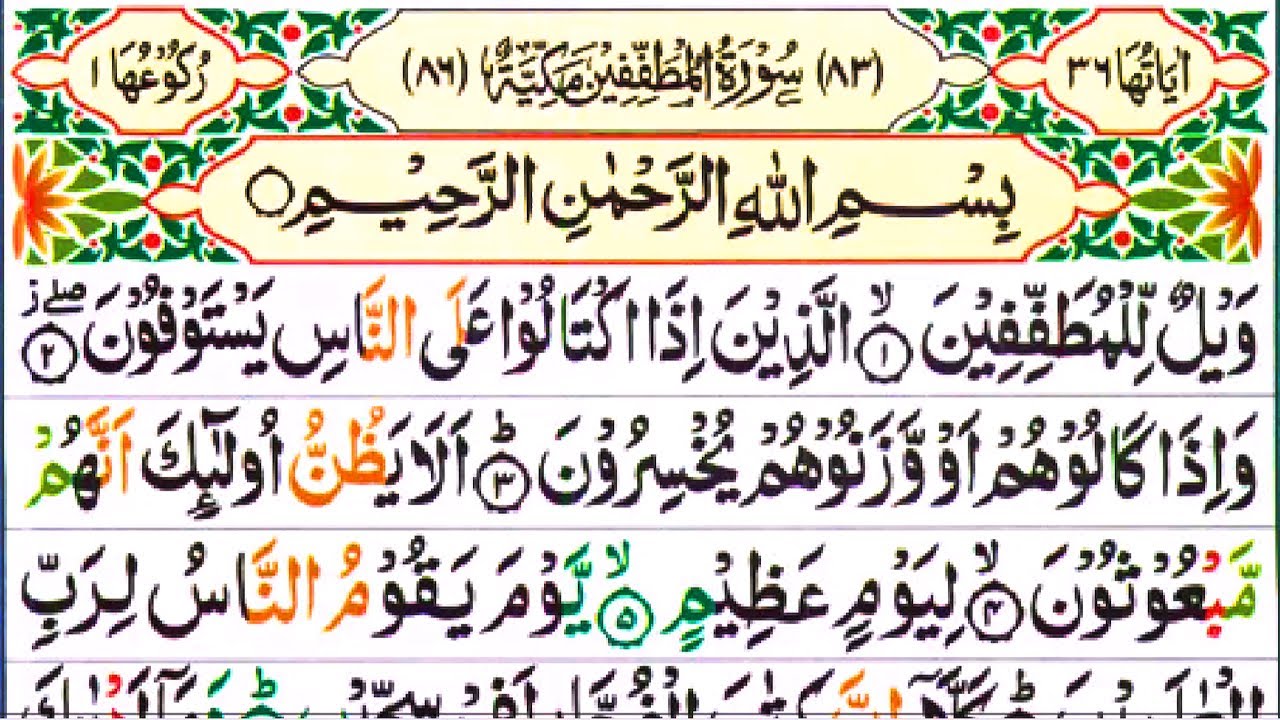 اٰيَاتُهَا ٣٦ (٨٣) سُوْرَةُ الْمُطَفِّفِيْنَ مَكِّيَّةٌ (٨٦) رُكُوْعُهَا ١
بِسْمِ اللّٰهِ الرَّحْمٰنِ الرَّحِيْمِ
وَيْلٌ لِّلْمُطَفِّفِيْنَ ۙ﴿١﴾ الَّذِيْنَ اِذَا اكْتَالُوْا عَلَى النَّاسِ يَسْتَوْفُوْنَ ۖ ز ﴿٢﴾
وَاِذَا كَالُوْهُمْ اَوْ وَّزَنُوْهُمْ يُخْسِرُوْنَ ؕ﴿٣﴾ اَلَا يَظُنُّ اُولٰٓئِكَ اَنَّهُمْ
مَّبْعُوْثُوْنَ ۙ﴿٤﴾ لِيَوْمٍ عَظِيْمٍ ۙ﴿٥﴾ يَّوْمَ يَقُوْمُ النَّاسُ لِرَبِّ